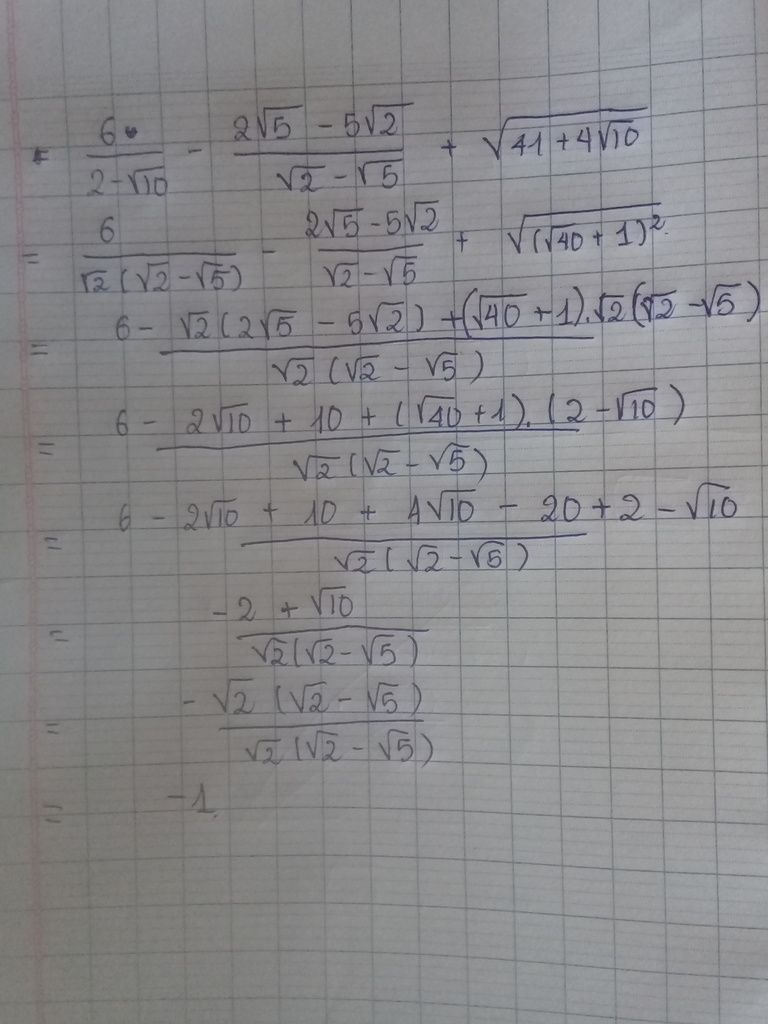 6/(2-√10) - (2√5 - 5√2)/(√2 - √5) + √(41 + 4√10)
= 6/(√2(√2 - √5)) - (2√5 - 5√2)/(√2 - √5) + √((√40 + 1)²)
= (6 - √2(2√5 - 5√2) + (√40 + 1).√2(√2 - √5))/(√2(√2 - √5))
= (6 - 2√10 + 10 + (√40 + 1).(2 - √10))/(√2(√2 - √5))
= (6 - 2√10 + 10 + 4√10 - 20 + 2 - √10)/(√2(√2 - √5))
= (-2 + √10)/(√2(√2 - √5))
= (-√2(√2 - √5))/(√2(√2 - √5))
= -1.